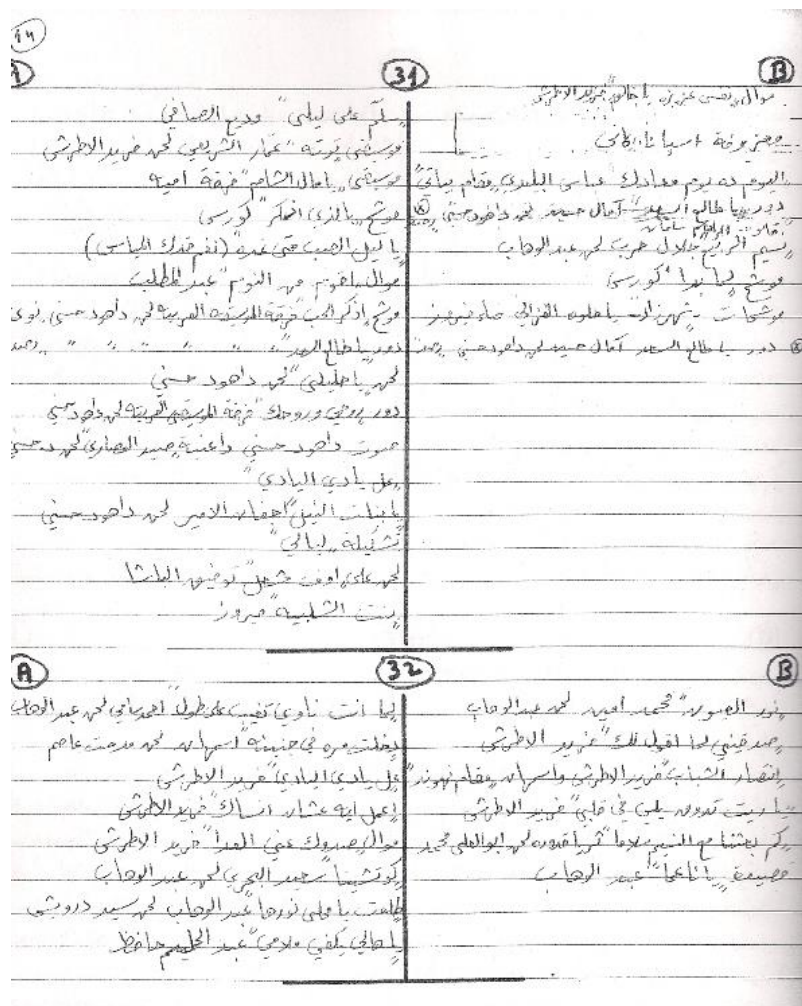 14
A
31
B
سلّم على ليلى" وديع الصافي
موسيقى توته" عمار الشريعي لحن فريد الاطرش
موسيقى "يا مال الشام" فرقة امية
موشح "يا الذي اسكر" كورس
يا ليل الصب متى غده (نغم قدك المياس)
موال عبد المطلب
موشح إذكر الحب" فرقة الموسيقى العربية لحن داهود حسني نوى
دور "يا طالع السعد" " " " " رصد
لحن "يا حليلى" لحن داهود حسني
دور "روحي وروحك" فرقة الموسيقى العربية لحن داهود حسني
صوت داهود حسني واغنية صيد العصاري لحن د. حسني
"عل يادي اليادي"
يا بنات النيل" لحن داهود حسني
تشكيلة "ليالي"
لحن على توفيق الباشا
بنت الشلبية" فيروز
موال "نفسي عزيزه يا خالو" فريد الاطرش
معزوفة اسبانا
اليوم ده يوم معادك" عباس البليدي مقام بياتي
دور "يا طالع السعد" آمال حسين لحن داهود حسني
نسيم الريح" جلال حرب لحن عبد الوهاب
موشح "لما بدا" كورس
موشحات "شهرزاد" يا حلوه
دور يا طالع السعد آمال حسين لحن داهود حسني رصد
A
32
B
لما انت ناوي تغيب على طول" احمد سامي لحن عبد الوهاب
دخلت مره في جنينه" اسمهان لحن مدحت عاصم
"عل يادي اليادي" فريد الاطرش
إعمل ايه عشان انساك" فريد الاطرش
موال "صدوك عني العدا" فريد الاطرش
كوتشينا" سعد البحري لحن عبد الوهاب
طلعت يا محلى نورها" عبد الوهاب لحن سيد درويش
يا مالي يكفي ملامي" عبد الحليم حافظ
نور العيون" محمد امين لحن عبد الوهاب
صدقيني لما اقول لك" فريد الاطرش
إنتصار الشباب" فريد الاطرش واسمهان مقام نهوند
يا ريت تدوق يلي في قلبي" فريد الاطرش
كم بعثنا مع النسيم سلاما" ثريا قدوره لحن ابو العلى محمد
قصيدة "يا ناعما" عبد الوهاب